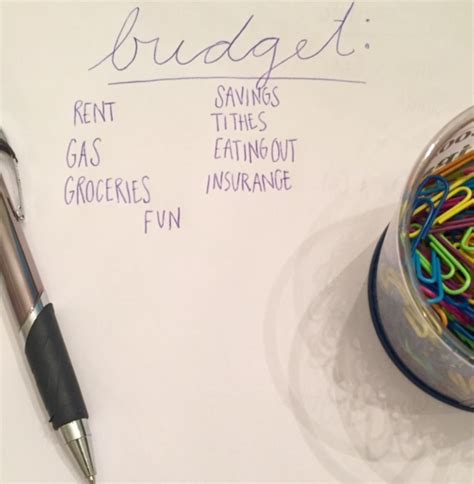 budget:
RENT
GAS
GROCERIES
SAVINGS
TITHES
EATING OUT
INSURANCE
FUN